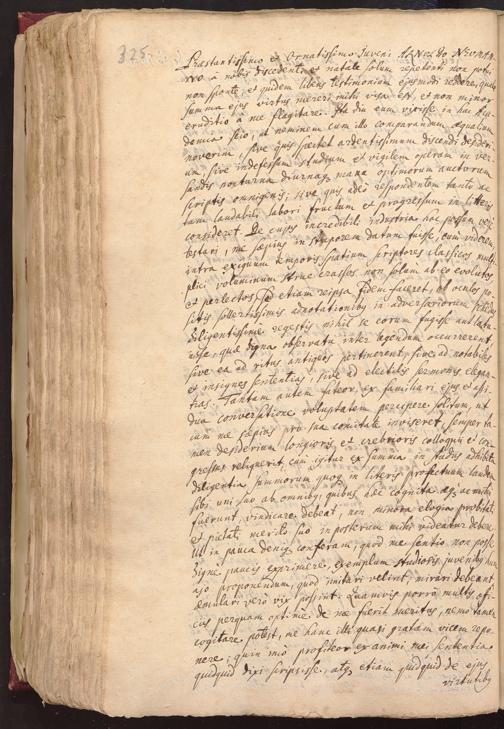 325.
Præstantissimo et Ornatissimo Juveni
à nobis discedenti et natale solum repetenti
non sponte, et quidem libens testimonium ejusmodi
summa ejus virtus mereri mihi visa est, et non minor
eruditio à me flagitare. Ita diu eum vixisse in hac
scio, ut neminem cum illo comparandum æqualium
noverim, sive quis spectet ardentissimum discendi desideri-
um, sive indefessum studium et vigilem operam in ver-
sandis nocturna diurnaq manu optimorum auctorum
scriptis omnigenis; sive quis adeo respondentem tanto ac
tam laudabili labori fructum et progressum in litteris
consideret. De cujus incredibili industria hoc possum
testari, me sæpius in stuporem datum fuisse, cum viderem
intra exiguum temporis spatium scriptores classicos multi-
plici voluminum strue crassos non solum ab eo evolutos
et perlectos, sed etiam reipsa fidem faceret, ob oculos po-
sitis sollertissimis adnotationibq in adversariorum schedas
diligentissime regestis nihil se eorum fugisse aut
quæ digna observatu inter legendum occurrerent,
sive ea ad ritus antiquos pertinerent, sive ad notabiles
et insignes sententias, sive ad electiles sermonis elegan-
tias. Tantam autem fateor ex familiari ejus et assi-
dua conversatione voluptatem percipere solitum, ut
cum me sæpius pro sua comitate inviseret, semper ta-
men desiderium longioris et crebrioris colloquii et con-
gressus reliquerit. cum igitur ex summa in studiis adhibita
diligentia summorum quoq in literis profectuum laudem
sibi uni suo ab omnibq, quibus hæc cognita
fuerunt, vindicare debeat, non minora elogia probitati
et pietati merito suo in posterum mihi videatur debere.
Ut in pauca deniq conferam, quod me sentio non posse
digne paucis exprimere, exemplum studiosis juvenibq
proponendum, quod imitari velint, mirari debeant
æmulari vero vix possint. Quamvis porro multis offi-
ciis perquam optime de me fuerit meritus, nemo tamen
cogitare potest, me hanc illi quasi gratam vicem repo-
nere, quin imò profiteor ex animi mei sententia
quidquid dixi scripsisse, atq etiam quidquid de ejus
virtutibq